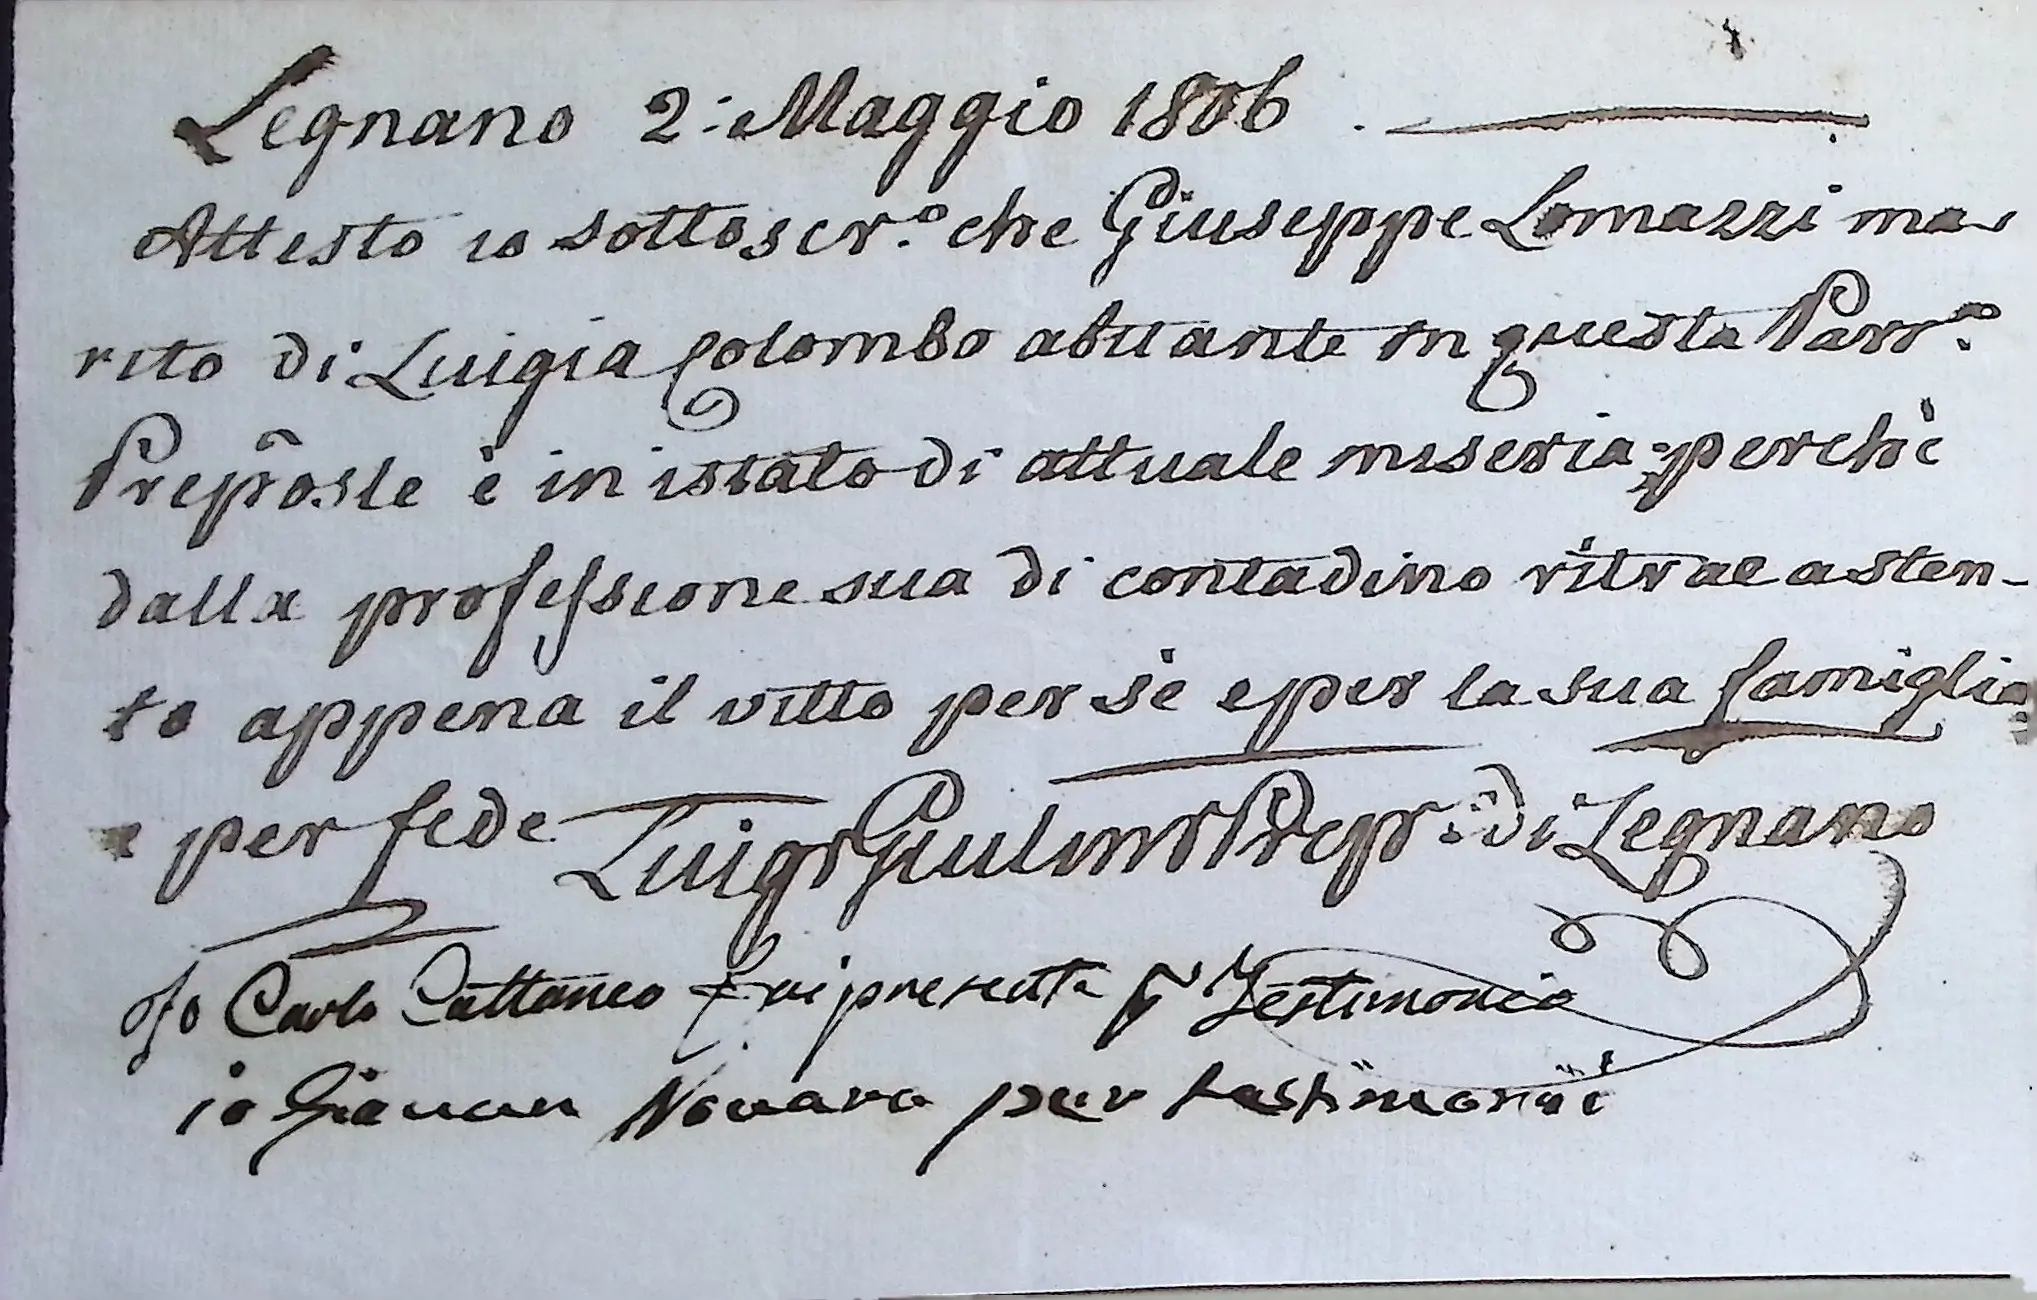 Legnano 2: Maggio 1806.
Attesto io sottoscr.º che Giuseppe Lomazzi ma-
rito di Luigia Colombo abitante in questa Parr.ª
Prep̃osle è in istato di attuale miseria, perchè
dalla professione sua di contadino ritrae a sten-
to appena il vitto per sè e per la sua famiglia
e per fede Luigi Giulini Prep.º di Legnano
Io Carlo Cattaneo fui presente p Testimonio
io Giovan Novara per testimoni